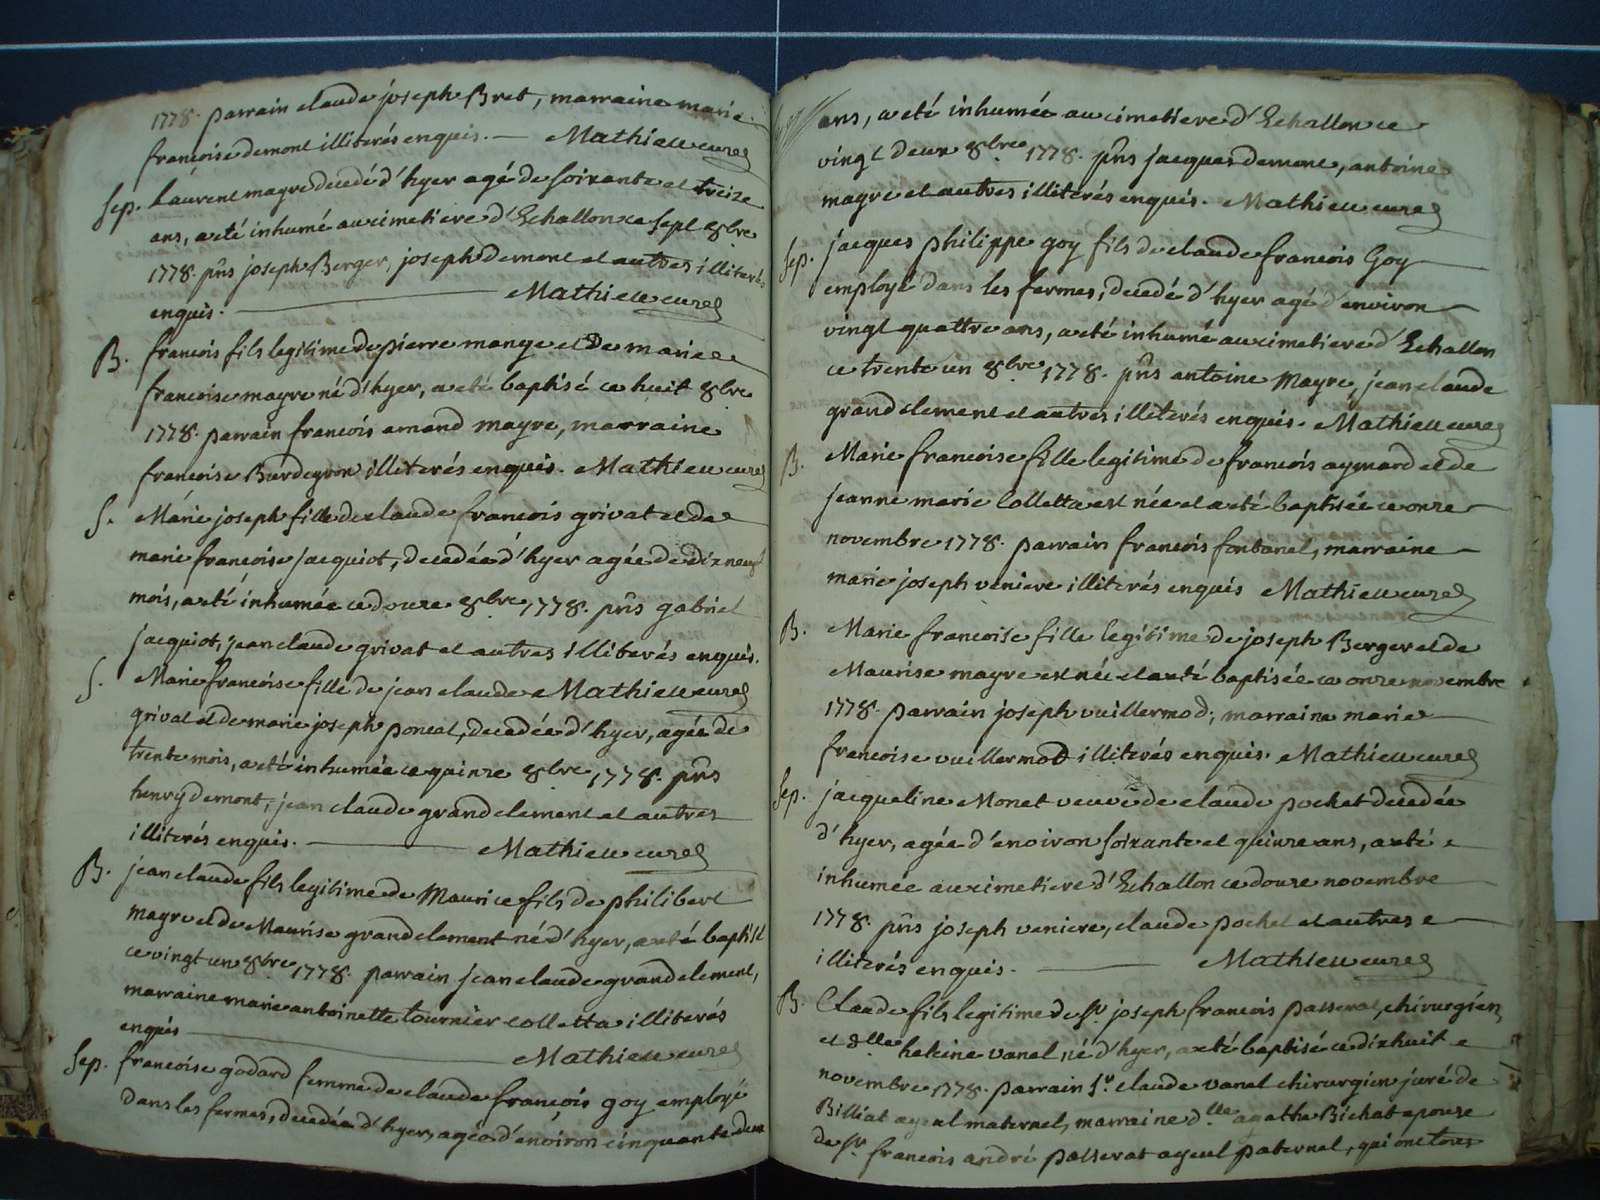 1778. parrain claude joseph Bret, marraine marie
francoise demont illiterés enquis. — Mathieu curé
Sep. Laurent mayre decedé d'hyer agé de soixante et treize
ans, a eté inhumé au cimetiere d'Echallon ce sept 8bre
1778. pñs joseph Berger, joseph demont et autres illiterés
enquis. — Mathieu curé
B. francois fils legitime de pierre mange et de marie
francoise mayre né d'hyer, a eté baptisé ce huit 8bre
1778. parrain francois amand mayre, marraine
francoise Burdeyron illiterés enquis. Mathieu curé
S. Marie joseph fille de claude francois grivat et de
marie francoise jacquiot, decedée d'hyer agée de dix neuf
mois, a eté inhumée ce douze 8bre 1778. pñs gabriel
jacquiot, jean claude grivat et autres illiterés enquis.
S. Marie francoise fille de jean claude Mathieu curé
grivat et de marie joseph poncet, decedée d'hyer, agée de
trente mois, a eté inhumée ce quinze 8bre 1778. pñs
henry demont, jean claude grandclement et autres
illiterés enquis. — Mathieu curé
B. jean claude fils legitime de Maurice fils de philibert
mayre et de Maurise grandclement né d'hyer, a eté baptisé
ce vingt un 8bre 1778. parrain jean claude grandclement,
marraine marie antoinette tournier colletta illiterés
enquis — Mathieu curé
Sep. francoise godard femme de claude françois goy employé
dans les fermes, decedée d'hyer, agée d'environ cinquante deux
ans, a eté inhumée au cimetiere d'Echallon ce
vingt deux 8bre 1778. pñs jacques demont, antoine
mayre et autres illiterés enquis. Mathieu curé
Sep. jacques philippe goy fils de claude francois Goy
employé dans les fermes, decedé d'hyer agé d'environ
vingt quattre ans, a eté inhumé au cimetiere d'Echallon
ce trente un 8bre 1778. pñs antoine Mayre, jean claude
grandclement et autres illiterés enquis. Mathieu curé
B. Marie francoise fille legitime de francois aymard et de
jeanne marie Colletta est née et a eté baptisée ce onze
novembre 1778. parrain francois fontanel, marraine
marie joseph veniere illiterés enquis Mathieu curé
B. Marie francoise fille legitime de joseph Berger et de
Maurise mayre est née et a eté baptisée ce onze novembre
1778. parrain joseph vuillermod, marraine marie
francoise vuillermod illiterés enquis. Mathieu curé
Sep. jacqueline Monet veuve de claude pochet decedée
d'hyer, agée d'environ soixante et quinze ans, a eté
inhumée au cimetiere d'Echallon ce douze novembre
1778. pñs joseph veniere, claude pochet et autres
illiterés enquis. — Mathieu curé
B. Claude fils legitime de Sr joseph francois passerat, chirurgien,
et dlle heleine vanel, né d'hyer, a eté baptisé ce dixhuit
novembre 1778. parrain Sr claude vanel chirurgien juré de
Billiat ayeul maternel, marraine dlle agathe Bichat epouse
de Sr francois andré passerat ayeul paternel, qui ont tous